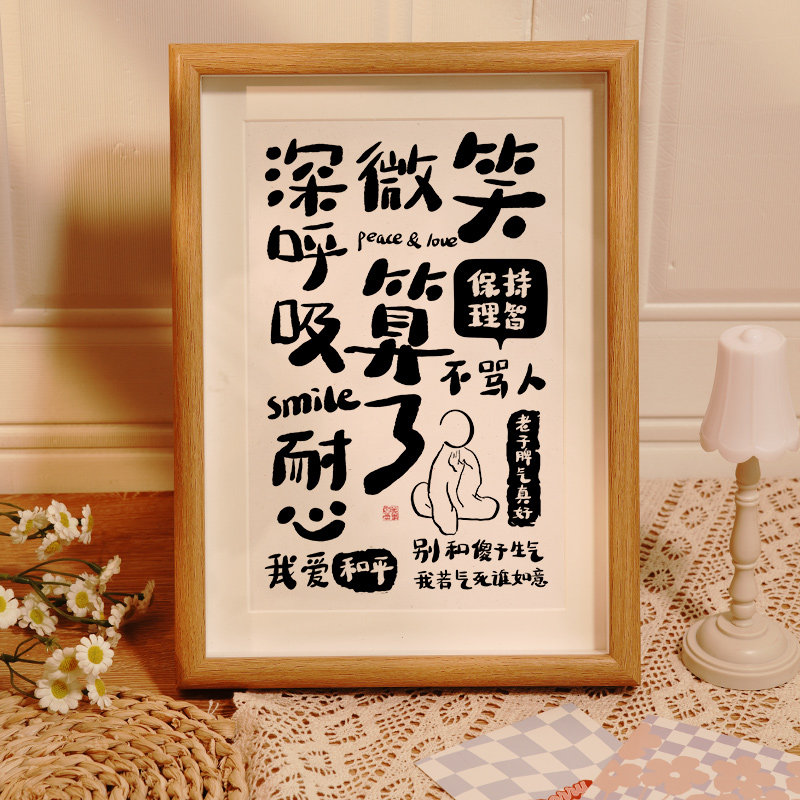 深呼吸
smile
耐心
微笑
peace & love
算了
保持
理智
不骂人
老子脾气真好
别和傻子生气
我若气死谁如意
我爱和平